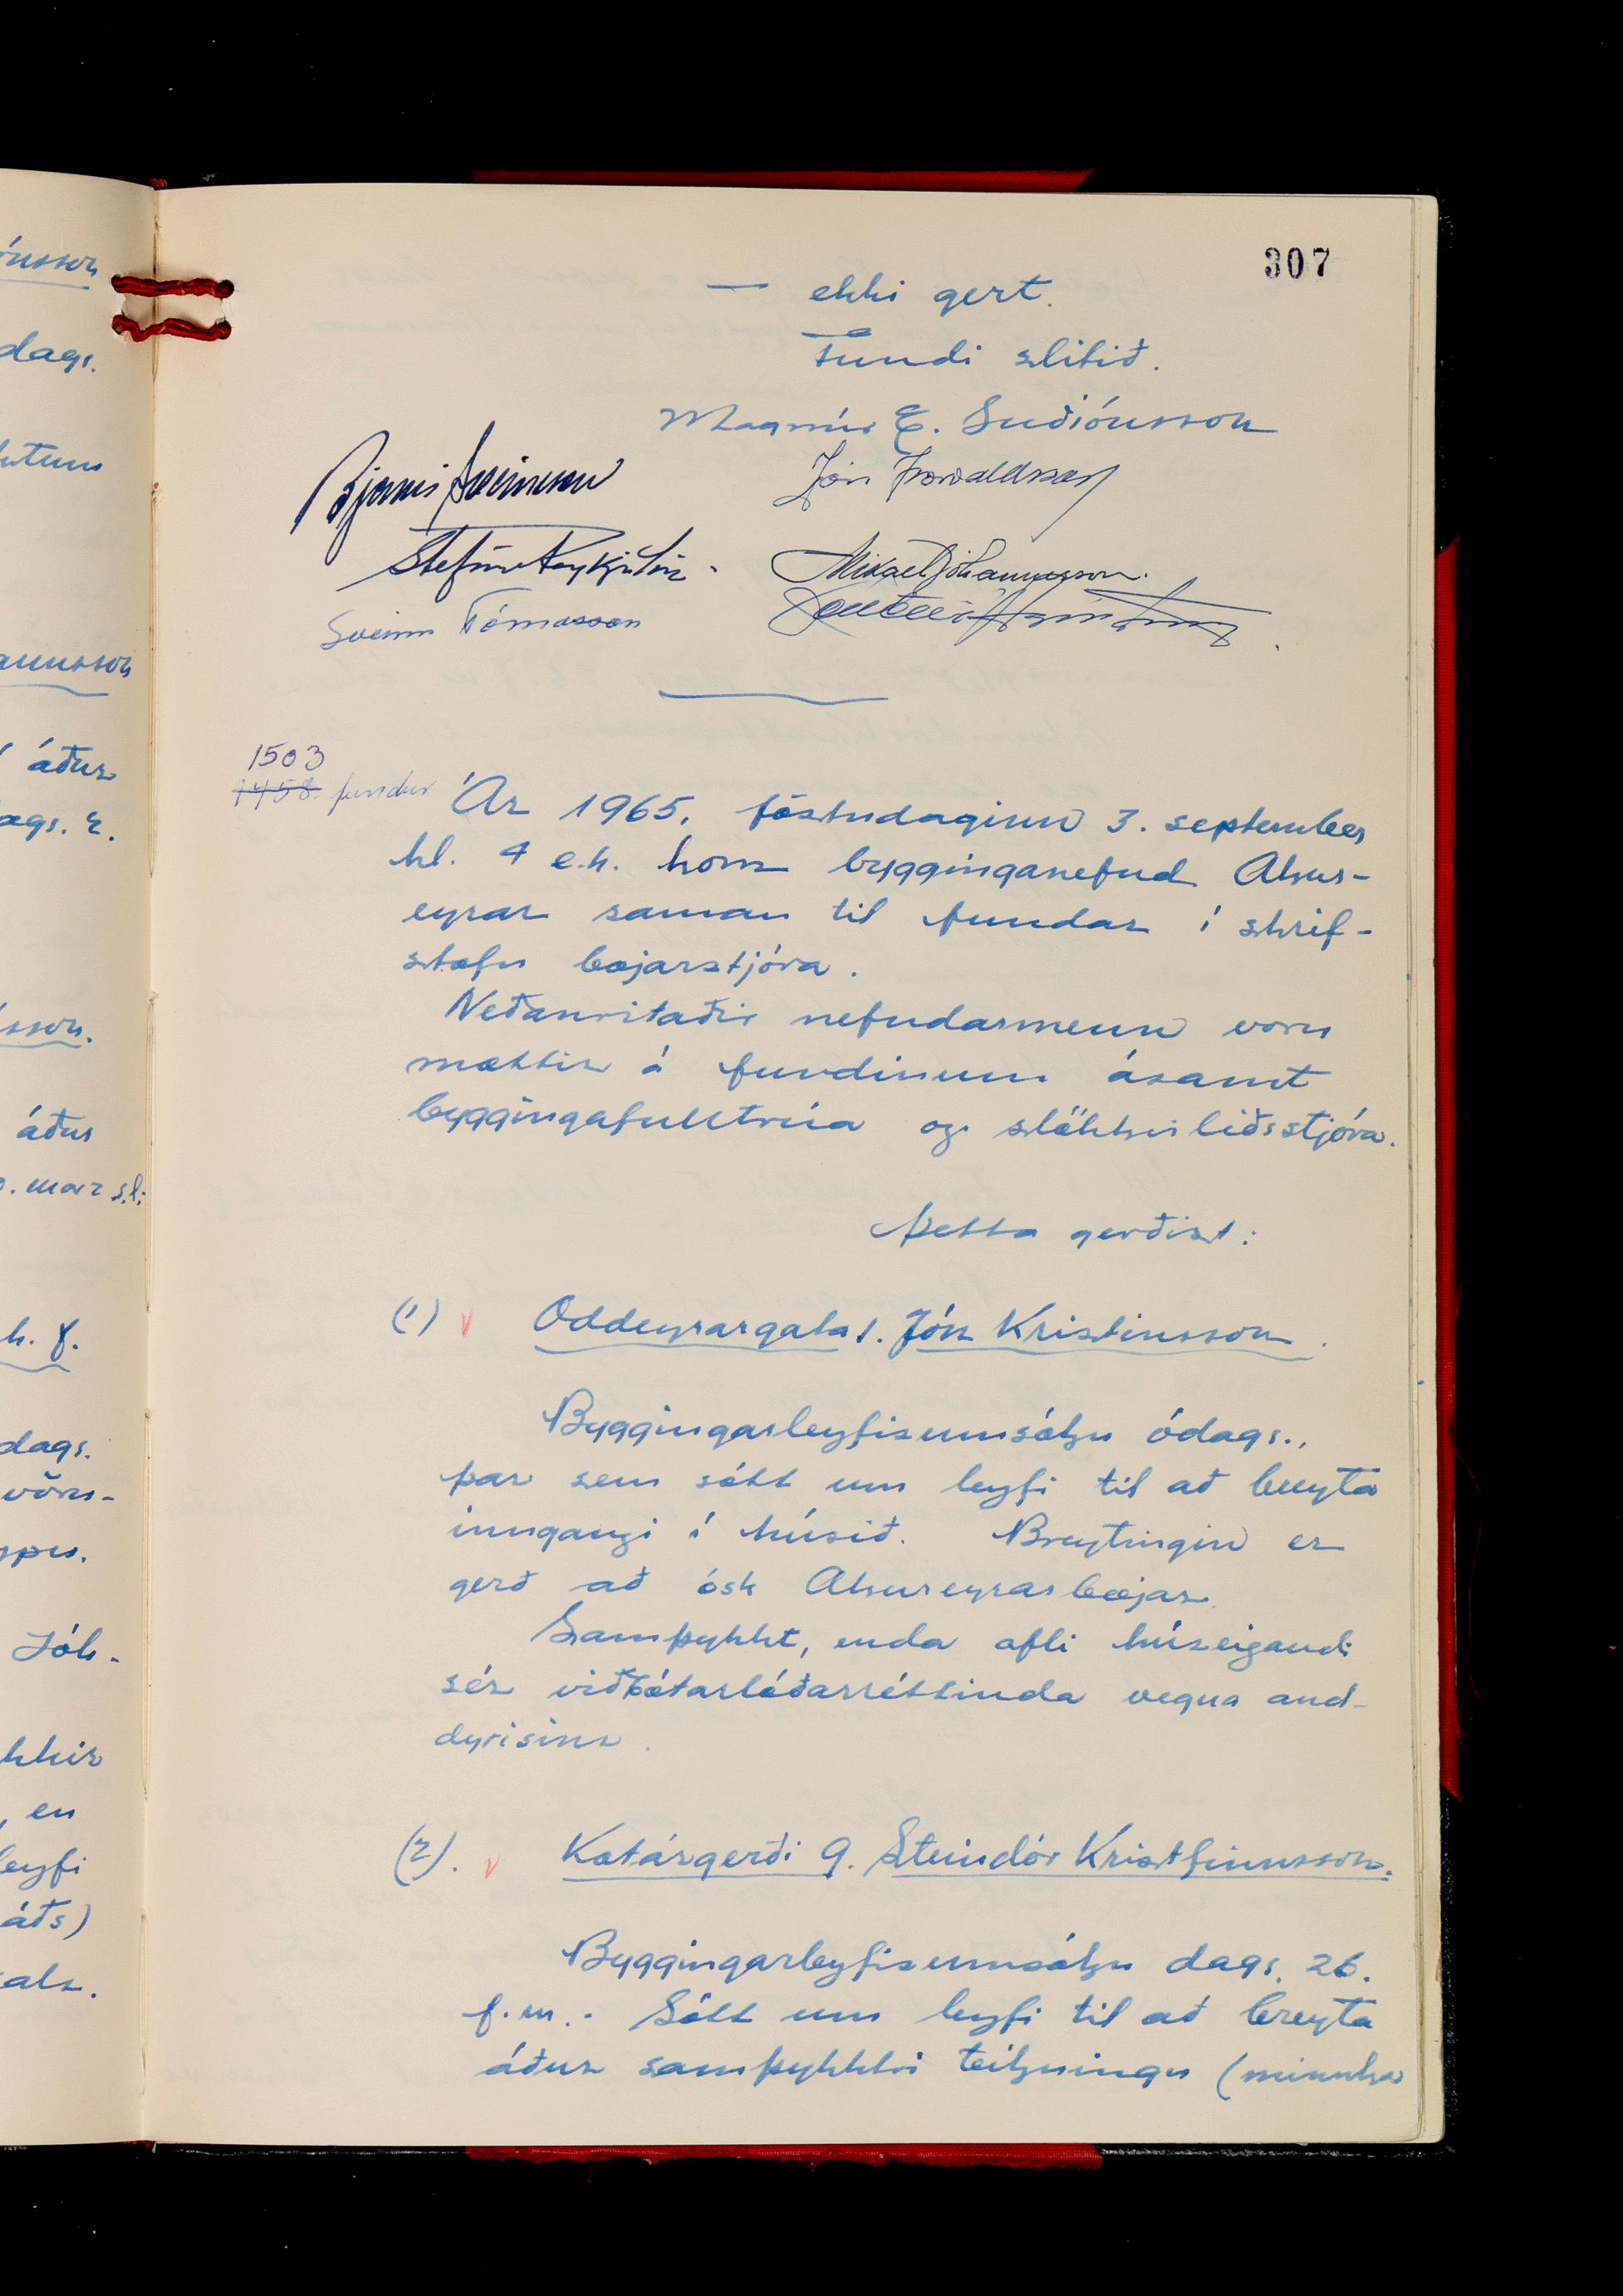 307
— ekki gert.
Fundi slitið.
Magnús E. Guðjónsson
Bjarni Sveinsson
Jón Þorvaldsson
Stefán Reykjalín.
Mikael Jóhannesson.
Sveinn Tómasson
1503
1458. fundur
Ár 1965, föstudaginn 3. september
kl. 4 e.h. kom bygginganefnd Akur-
eyrar saman til fundar í skrif-
stofu bæjarstjóra.
Neðanritaðir nefndarmenn voru
mættir á fundinum ásamt
byggingafulltrúa og slökkviliðsstjóra.
Þetta gerðist:
(1) v Oddeyrargata 1. Jón Kristinsson.
Byggingarleyfisumsókn ódags.,
þar sem sótt um leyfi til að breyta
inngangi í húsið. Breytingin er
gerð að ósk Akureyrarbæjar.
Samþykkt, enda afli húseigandi
sér viðbótarlóðarréttinda vegna and-
dyrisins.
(2). v Kotárgerði 9. Steindór Kristfinnsson.
Byggingarleyfisumsókn dags. 26.
f.m.. Sótt um leyfi til að breyta
áður samþykktri teikningu (minnka
ónsson
dags.
annsson
áður
dags. 2.
sson.
áður
. marz s.l.
h. f.
dags.
vöru-
Jóh-
, en
leyfi
áðs)